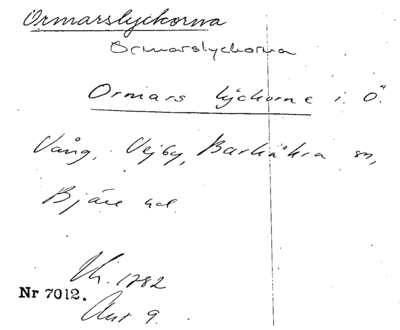 Ormarslyckorna
Ormarslyckorna
Ormars lyckorne i Ö.
Vång, Vejby, Barkåkra sn,
Bjäre hd.
1782
Nr 7012.
9.